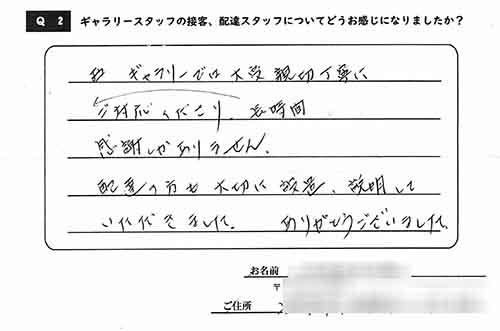 Q 2 ギャラリースタッフの接客、配達スタッフについてどうお感じになりましたか？
ギャラリーでは大変親切丁寧に
ご対応くださり、長時間
感謝しかありません。
配達の方も大切に設置、説明して
いただきました。ありがとうございました。
お名前
〒
ご住所